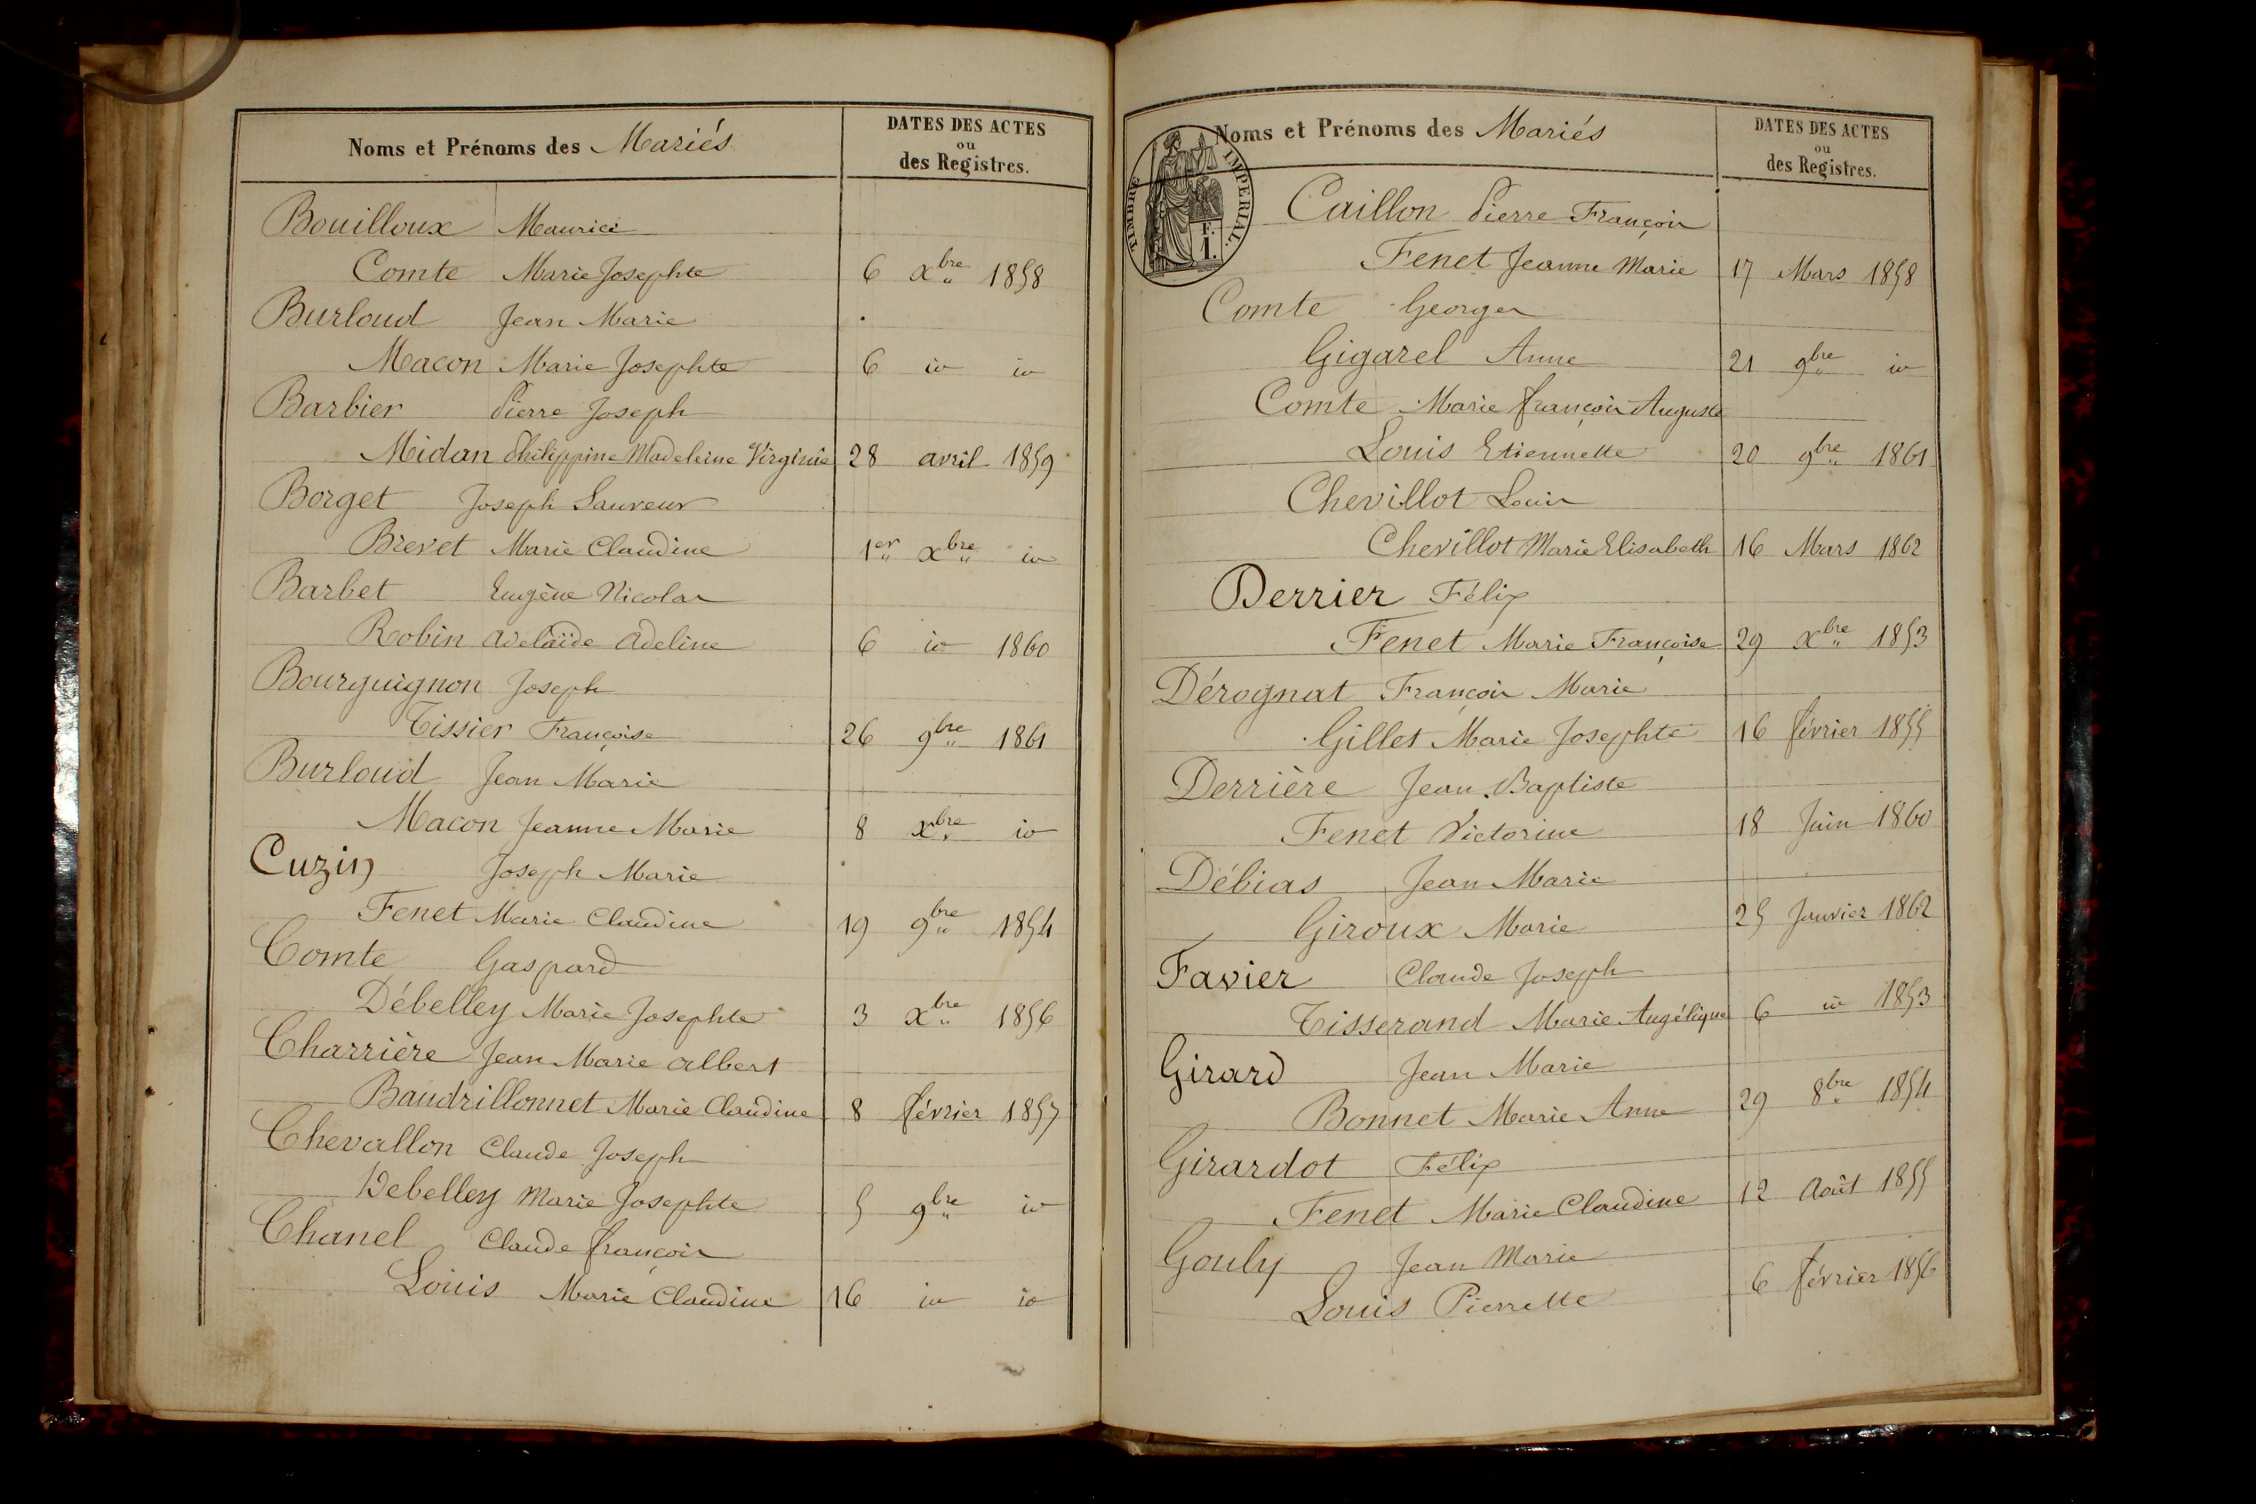 Noms et Prénoms des Mariés
DATES DES ACTES
ou
des Registres.
Bouilloux Maurice
Comte Marie Josephte 6 xbre 1858
Burloud Jean Marie
Macon Marie Josephte 6 id id
Barbier Pierre Joseph
Midan Philippine Madeleine Virginie 28 avril 1859
Borget Joseph Sauveur
Brevet Marie Claudine 1er xbre id
Barbet Eugène Nicolas
Robin Adelaïde Adeline 6 id 1860
Bourguignon Joseph
Tissier Françoise 26 9bre 1861
Burloud Jean Marie
Macon Jeanne Marie 8 xbre id
Cuzin Joseph Marie
Fenet Marie Claudine 19 9bre 1854
Comte Gaspard
Débelley Marie Josephte 3 xbre 1856
Charrière Jean Marie Albert
Baudrillonnet Marie Claudine 8 février 1857
Chevallon Claude Joseph
Debelley Marie Josephte 5 9bre id
Chanel Claude françois
Louis Marie Claudine 16 id id
Noms et Prénoms des Mariés
DATES DES ACTES
ou
des Registres.
TIMBRE IMPERIAL.
1 F.
Caillon Pierre François
Fenet Jeanne Marie 17 Mars 1858
Comte Georges
Gigarel Anne 21 9bre id
Comte Marie françois Auguste
Louis Etiennette 20 9bre 1861
Chevillot Louis
Chevillot Marie Elisabeth 16 Mars 1862
Derrier Félix
Fenet Marie Françoise 29 xbre 1853
Dérognat François Marie
Gillet Marie Josephte 16 février 1855
Derrière Jean Baptiste
Fenet Victorine 18 Juin 1860
Débias Jean Marie
Giroux Marie 25 Janvier 1862
Favier Claude Joseph
Tisserand Marie Angélique 6 id 1853
Girard Jean Marie
Bonnet Marie Anne 29 8bre 1854
Girardot Félix
Fenet Marie Claudine 12 Août 1855
Gouly Jean Marie
Louis Pierrette 6 février 1856